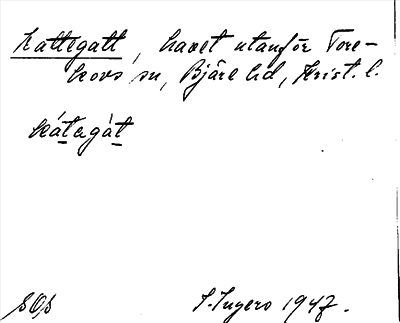 Kattegatt, havet utanför Tore-
kovs sn, Bjäre hd, Krist. l.
kátagát
SOP
S. Ingers 1947.